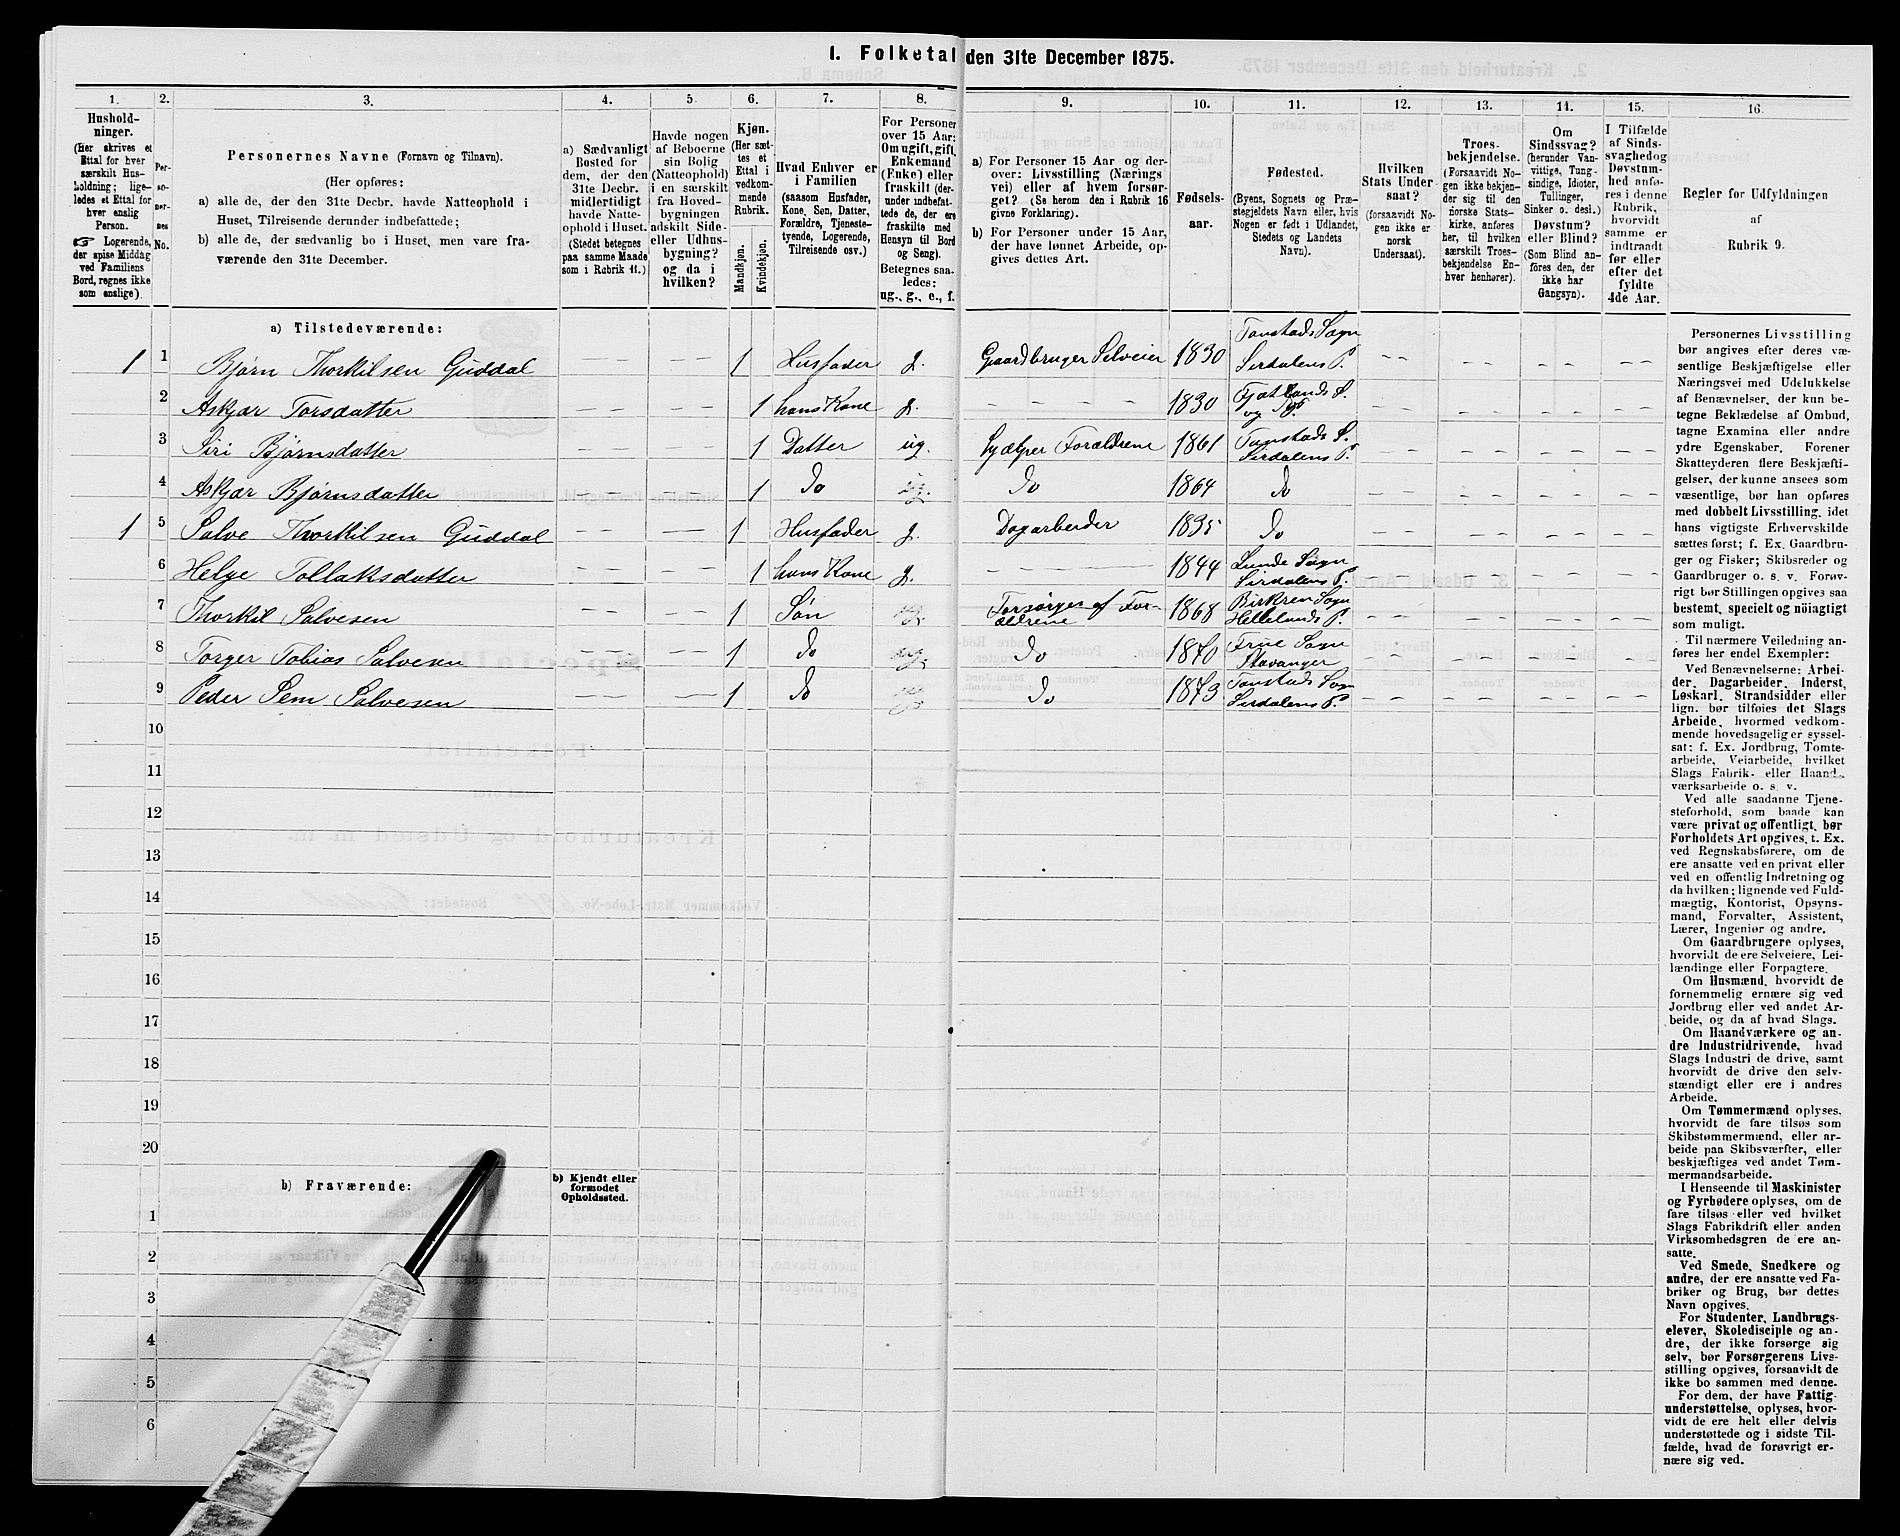 I. Folketal den 31te December 1875.
1. 2. 3. 4. 5. 6. 7. 8. 9. 10. 11. 12. 13. 14. 15. 16.
Hushold-
ninger.
(Her skrives et
Ettal for hver
særskilt Hus-
holdning; lige-
ledes et Ettal for
hver enslig
Person.
☞ Logerende,
der spise Middag
ved Familiens
Bord, regnes ikke
som enslige).
Per-
so-
ner-
nes
No.
Personernes Navne (Fornavn og Tilnavn).
(Her opføres:
a) alle de, der den 31te Decbr. havde Natteophold i
Huset, Tilreisende derunder indbefattede;
b) alle de, der sædvanlig bo i Huset, men vare fra-
værende den 31te December.
a) Sædvanligt
Bosted for
dem, der den
31te Decbr.
midlertidigt
havde Natte-
ophold i Huset.
(Stedet betegnes
paa samme Maade
som i Rubrik 11.)
Havde nogen
af Beboerne
sin Bolig
(Natteophold)
i en særskilt
fra Hoved-
bygningen
adskilt Side-
eller Udhus-
bygning?
og da i
hvilken?
Kjøn.
(Her sæt-
tes et
Ettal i
vedkom-
mende
Rubrik.
Mandkjøn.
Kvindekjøn.
Hvad Enhver er
i Familien
(saasom Husfader,
Kone, Søn, Datter,
Forældre, Tjeneste-
tyende, Logerende,
Tilreisende osv.)
For Personer
over 15 Aar:
Om ugift, gift,
Enkemand
(Enke) eller
fraskilt (der-
under indbefat-
tede de, der ere
fraskilte med
Hensyn til Bord
og Seng).
Betegnes saa-
ledes:
ug., g., e., f.
a) For Personer 15 Aar og der-
over: Livsstilling (Nærings
vei) eller af hvem forsør-
get? (Se herom den i Rubrik 16
givne Forklaring).
b) For Personer under 15 Aar,
der have lønnet Arbeide, op-
gives dettes Art.
Fødsels-
aar.
Fødested.
(Byens, Sognets og Præ-
stegjeldets Navn eller, hvis
Nogen er født i Udlandet,
Stedets og Landets
Navn).
Hvilken
Stats Under
saat?
(forsaavidt No-
gen ikke er
norsk
Undersaat).
Troes-
bekjendelse.
(Forsaavidt No
gen ikke bekjen-
der sig til den
norske Stats-
kirke, anføres
her, til hvilken
særskilt Troes-
bekjendelse En-
hver henhører).
Om
Sindssvag?
(herunder Van-
vittige, Tung-
sindige, Idioter,
Tullinger,
Sinker o. desl.)
Døvstum?
eller Blind?
(Som Blind an-
føres den, der
ikke har
Gangsyn).
I Tilfælde
af Sinds-
svaghedog
Døvstum-
hed anfø-
res i denne
Rubrik,
hvorvidt
samme er
indtraadt
før eller
efter det
fyldte
4de Aar.
Regler for Udfyldningen
af
Rubrik 9.
a) Tilstedeværende:
1 1 Bjørn Thorkilsen Guddal — — — — 1 Husfader g. Gaardbruger Selveier 1830 Tonstads Sogn Sirdalens P.
2 Askjær Torsdatter — — — — 1 hans Kone g. — — — — 1830 Fjotlands S. og P.
3 Siri Bjørnsdatter — — — — 1 Datter ug. hjælper Forældrene 1861 Tonstads S. Sirdalens P.
4 Askjær Bjørnsdatter — — — — 1 do ug. do 1864 do
1 5 Salve Thorkilsen Guddal — — — — 1 Husfader g. Dagarbeider 1835 do
6 Helge Tollaksdatter — — — — 1 hans Kone g. — — — — 1844 Lunde Sogn Sirdalens P.
7 Thorkil Salvesen — — — — 1 Søn ug. Forsørges af For- ældrene 1868 Birkrem Sogn Hellelands P.
8 Torger Tobias Salvesen — — — — 1 do ug. do 1870 Frue Sogn Stavanger
9 Peder Sem Salvesen — — — — 1 do ug. do 1873 Tonstads Sogn Sirdalens P.
10
11
12
13
14
15
16
17
18
19
20
b) Fraværende:
b) Kjendt eller
formodet
Opholdssted.
1
2
3
4
5
6
Personernes Livsstilling
bør angives efter deres væ-
sentlige Beskjæftigelse eller
Næringsvei med Udelukkelse
af Benævnelser, der kun be-
tegne Beklædelse af Ombud,
tagne Examina eller andre
ydre Egenskaber. Forener
Skatteyderen flere Beskjæfti-
gelser, der kunne ansees som
væsentlige, bør han opføres
med dobbelt Livsstilling, idet
hans vigtigste Erhvervskilde
sættes først; f. Ex. Gaardbru-
ger og Fisker; Skibsreder og
Gaardbruger o. s. v. Forøv-
rigt bør Stillingen opgives saa
bestemt, specielt og nöiagtigt
som muligt.
Til nærmere Veiledning an-
føres her endel Exempler:
Ved Benævnelserne: Arbei-
der, Dagarbeider, Inderst,
Løskarl, Strandsidder eller
lign. bør tilføies det Slags
Arbeide, hvormed vedkom-
mende hovedsagelig er syssel-
sat: f. Ex. Jordbrug, Tomte-
arbeide, Veiarbeide, hvilket
Slags Fabrik- eller Haand-
værksarbeide o. s. v.
Ved alle saadanne Tjene-
steforhold, som baade kan
være privat og offentligt, bør
Forholdets Art opgives, t. Ex.
ved Regnskabsførere, om de
ere ansatte ved en privat eller
ved en offentlig Indretning og
da hvilken; lignende ved Fuld-
mægtig, Kontorist, Opsyns-
mand, Forvalter, Assistent,
Lærer, Ingeniør og andre.
Om Gaardbrugere oplyses,
hvorvidt de ere Selveiere, Lei-
lændinge eller Forpagtere.
Om Husmænd, hvorvidt de
fornemmelig ernære sig ved
Jordbrug eller ved andet Ar-
beide, og da af hvad Slags.
Om Haandværkere og an-
dre Industridrivende, hvad
Slags Industri de drive, samt
hvorvidt de drive den selv-
stændigt eller ere i andres
Arbeide.
Om Tømmermænd oplyses,
hvorvidt de fare tilsøs som
Skibstømmermænd, eller ar-
beide paa Skibsværfter, eller
beskjæftiges ved andet Tøm-
mermandsarbeide.
I Henseende til Maskinister
og Fyrbødere oplyses, om de
fare tilsøs eller ved hvilket
Slags Fabrikdrift eller anden
Virksomhedsgren de ere an-
satte.
Ved Smede, Snedkere og
andre, der ere ansatte ved Fa-
briker og Brug, bør dettes
Navn opgives.
For Studenter, Landbrugs-
elever, Skoledisciple og an-
dre, der ikke forsørge sig
selv, bør Forsørgerens Livs-
stilling opgives, forsaavidt de
ikke bo sammen med denne.
For dem, der have Fattig-
understøttelse, oplyses, hvor-
vidt de ere helt eller delvis
understøttede og i sidste Til-
fælde, hvad de forøvrigt er-
nære sig ved.